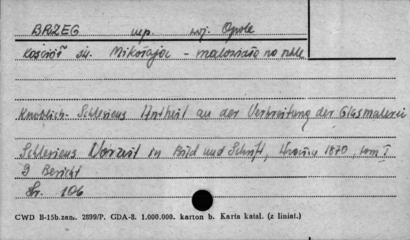 BRZEG woj. Opole
Kościół św. Mikołaja - malowidła na szkle
Knoblich - Schlesiens Antheil an der Verbreitung der Glasmalerei
Schlesiens Vorzeit in Bild und Schrift, 1870, tom I
9 Bericht
Str. 106
CWD B-15b.zam. 2899/P. GDA-8. 1.000.000. karton b. Karta katal. (z liniat.)